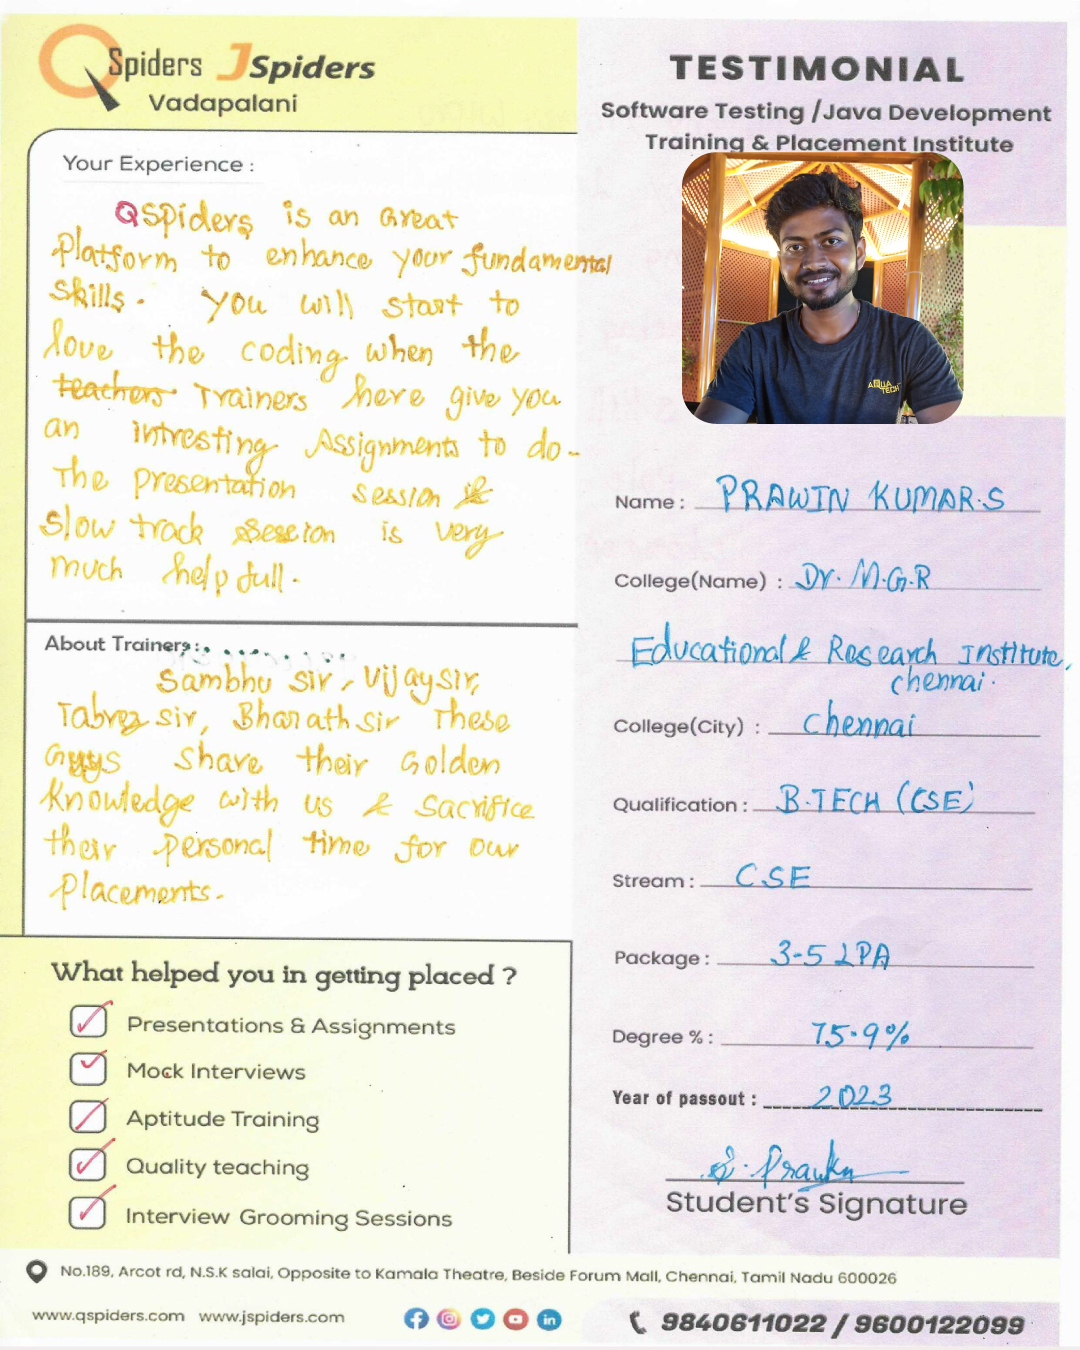 QSpiders JSpiders
Vadapalani
TESTIMONIAL
Software Testing /Java Development
Training & Placement Institute
Your Experience :
QSpiders is an Great
Platform to enhance your fundamental
skills. You will start to
love the coding when the
teachers Trainers here give you
an intresting Assignments to do.
The presentation session &
slow track session is very
much help full.
About Trainers:
Sambhu sir, Vijay sir,
Tabrez sir, Bharath sir These
Guys share their Golden
Knowledge with us & sacrifice
their personal time for our
placements.
What helped you in getting placed ?
Presentations & Assignments
Mock Interviews
Aptitude Training
Quality teaching
Interview Grooming Sessions
AQUA
TECH
Name : PRAWIN KUMAR.S
College(Name) : Dr. M.G.R
Educational & Research Institute,
chennai.
College(City) : chennai
Qualification : B.TECH (CSE)
Stream : CSE
Package : 3-5 LPA
Degree % : 75.9%
Year of passout : 2023
Student's Signature
No.189, Arcot rd, N.S.K salai, Opposite to Kamala Theatre, Beside Forum Mall, Chennai, Tamil Nadu 600026
www.qspiders.com www.jspiders.com
9840611022 / 9600122099